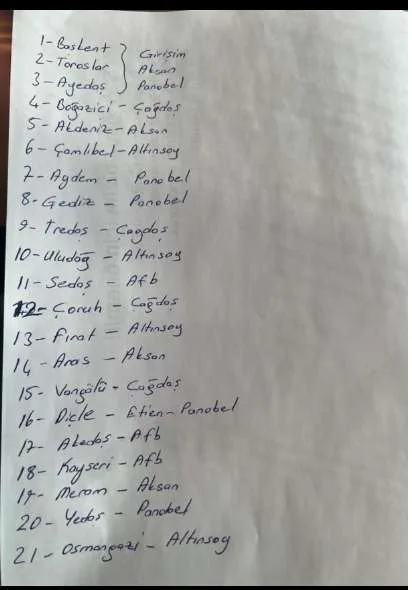 1-Başkent } Girişim
2-Toroslar } Aksan
3-Ayedaş } Panobel
4-Boğaziçi - Çağdaş
5-Akdeniz-Aksan
6-Çamlıbel-Altınsoy
7-Aydem - Panobel
8-Gediz - Panobel
9-Tredaş - Çagdaş
10-Uludağ - Altınsoy
11-Sedaş - Afb
12-Çoruh - Çağdaş
13-Fırat - Altınsoy
14-Aras - Aksan
15-Vangölü-Çağdaş
16-Dicle - Etien-Panobel
17-Akedaş-Afb
18-Kayseri-Afb
19-Meram - Aksan
20-Yedaş - Panobel
21-Osmangazi-Altınsoy